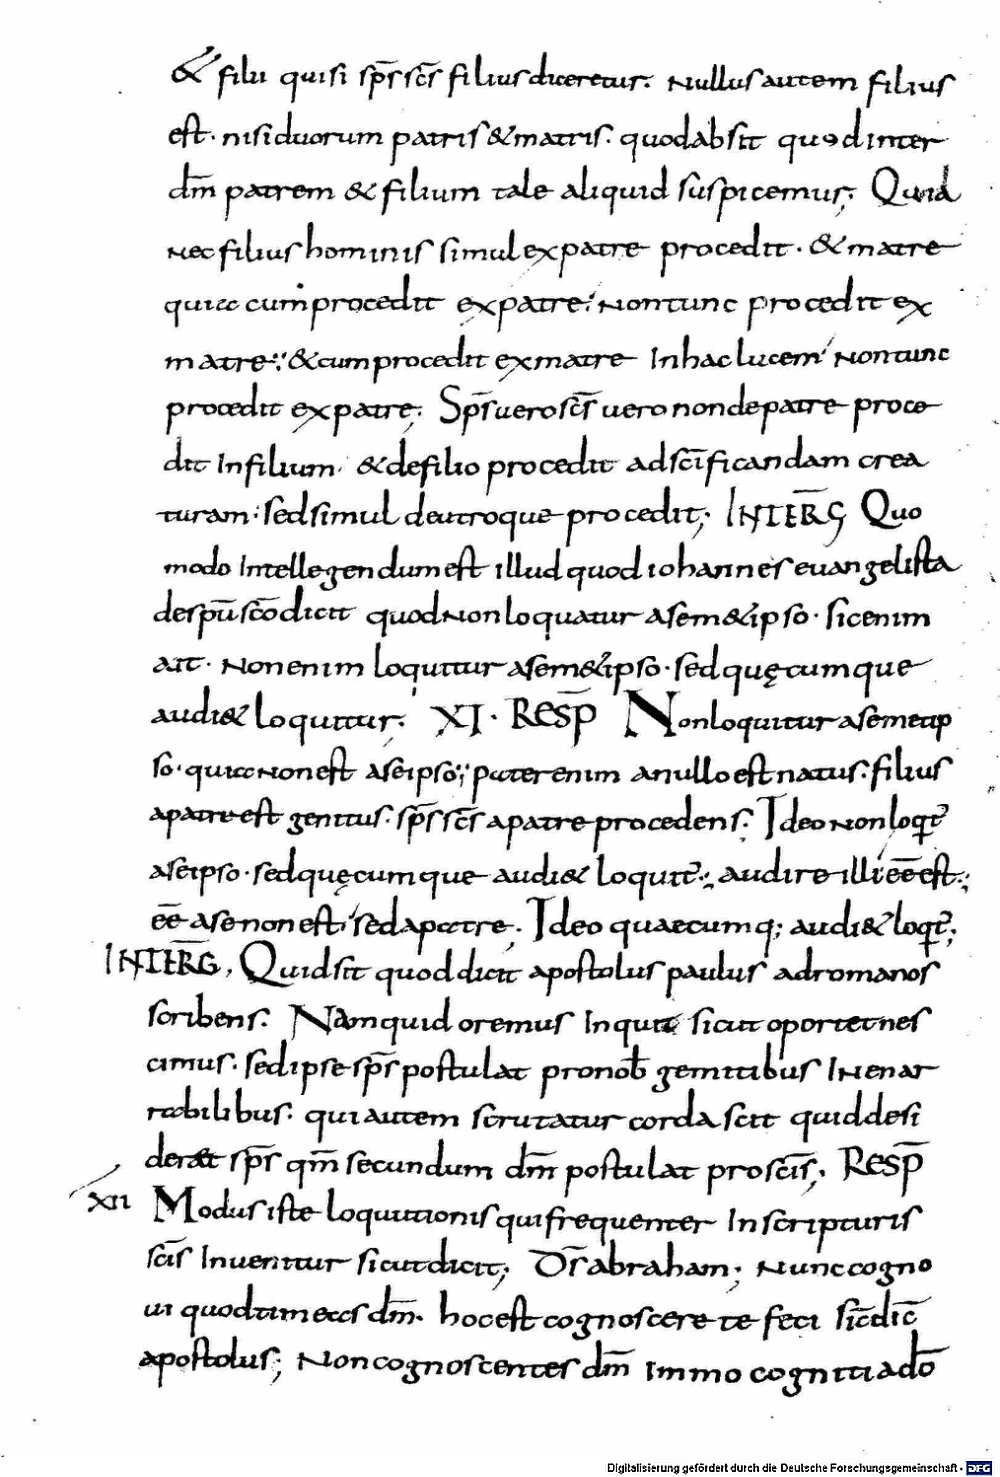 & filii quisi sp̄s sc̄s filius diceretur. Nullus autem filius
est· nisi duorum patris & matris. quod absit quod inter
dm̄ patrem & filium tale aliquid suspicemus; Quia
nec filius hominis simul ex patre procedit· & matre
quia cum procedit ex patre· non tunc procedit ex
matre·& cum procedit ex matre In hac lucem non tunc
procedit ex patre; Sp̄s uero sc̄s uero non de patre proce
dit In filium· & de filio procedit ad sc̄ificandam crea
turam· sed simul de utroque procedit; INTERG̅ Quo
modo Intellegendum est illud quod iohannes euangelista
de spū scō dicit quod Non loquatur a sem&ipso· sic enim
ait· Non enim loquitur a sem&ipso· sed quęcumque
audi& loquitur; XI· RESP̄ Non loquitur a semetip
so· quia Non est a seipso; pater enim a nullo est natus· filius
a patre est genitus· sp̄s sc̄s a patre procedens; Ideo Non loqt̄
a seipso· sed quęcumque audi& loquit̄; audire illi ēē est;
ēē a se non est· sed a patre; Ideo quaecumq; audi& loqt̄;
INTERG̅, Quid sit quod dicit apostolus paulus ad romanos
scribens. Nam quid oremus Inquit sicut oportet nes
cimus· sed ipse sp̄s postulat pro nob̄ gemitibus INenar
rabilibus. qui autem scrutatur corda scit quid desi
der&at sp̄s qm̄ secundum dm̄ postulat pro sc̄is; RESP̄
XII Modus iste loquutionis qui frequenter In scripturis
sc̄is Inuenitur sicut dicit; Dn̄s abraham; Nunc cogno
ui quod timeas dm̄. hoc est cognoscere te feci sic̄ dic̄
apostolus; Non cognoscentes dm̄ Immo cogniti a dō
Digitalisierung gefördert durch die Deutsche Forschungsgemeinschaft - DFG